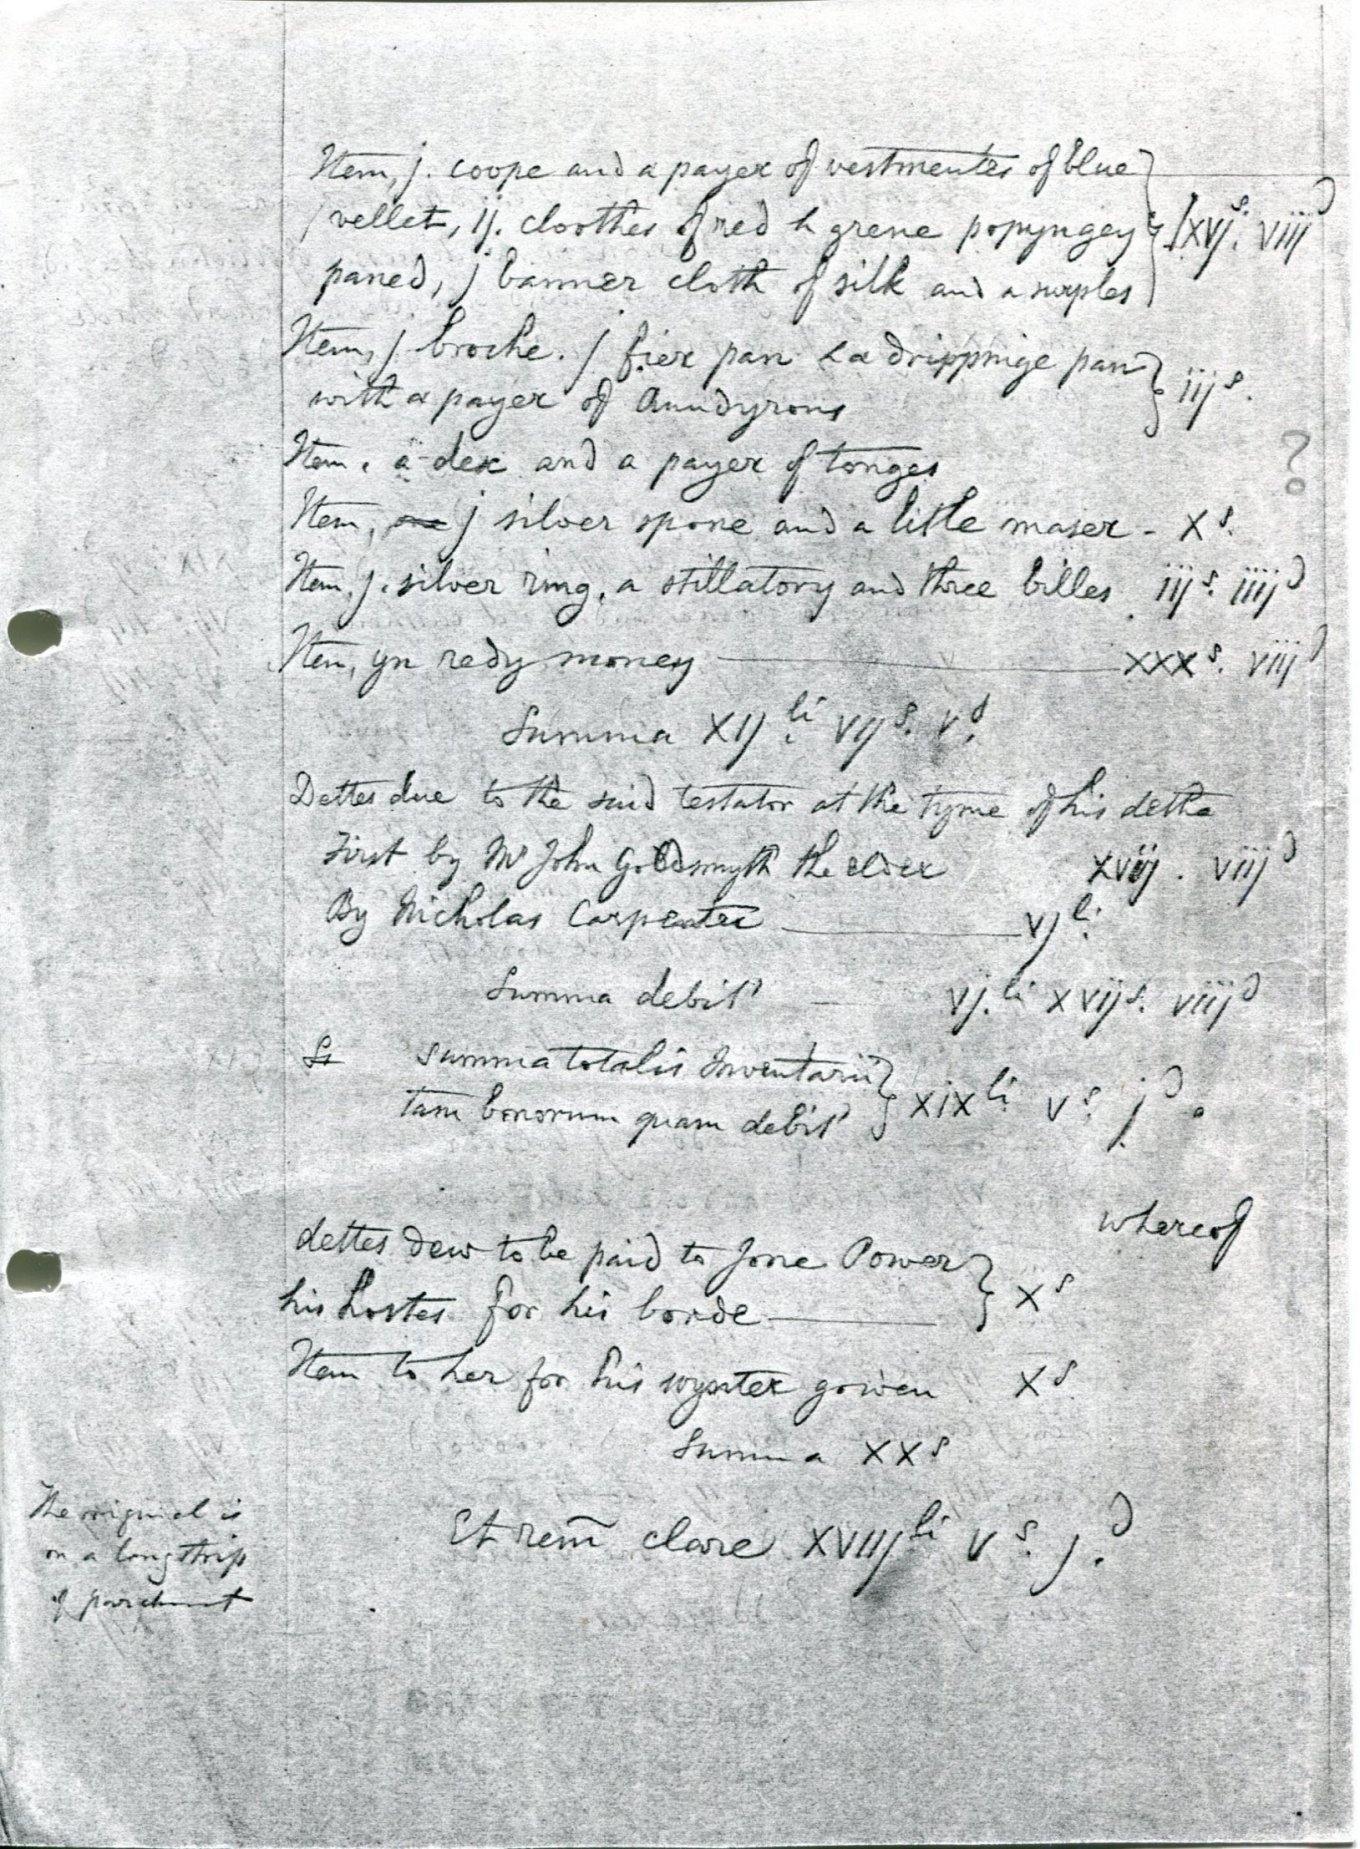 Item, j. coope and a payer of vestmentes of blue
vellet, ij. cloothes of red & grene popyngey
paned, j banner cloth of silk and a surples
lxvjs. viijd
Item, j broche. j fier pan & a drippinge pan
with a payer of Aundyrons
iijs.
Item, a dex and a payer of tonges
?
Item, j silver spone and a litle maser - xs.
Item, j. silver ring, a stillatory and three billes iijs. iiijd
Item, yn redy money xxxs. viijd
Summa xijli. vijs. vd.
Dettes due to the said testator at the tyme of his dethe
First by Mr John Goldsmyth the elder xvij. viijd
By Nicholas Carpenter vjli.
Summa debit' vj.li xvijs. viijd
Summa totalis Inventarii
tam bonorum quam debit' xixli vs. jd.
whereof
dettes dew to be paid to Jone Power
his hostes for his borde xs
Item to her for his wynter gowen xs
Summa xxs
Et rem̄ clare xviijli vs. j.d
The original is
on a long strip
of parchment